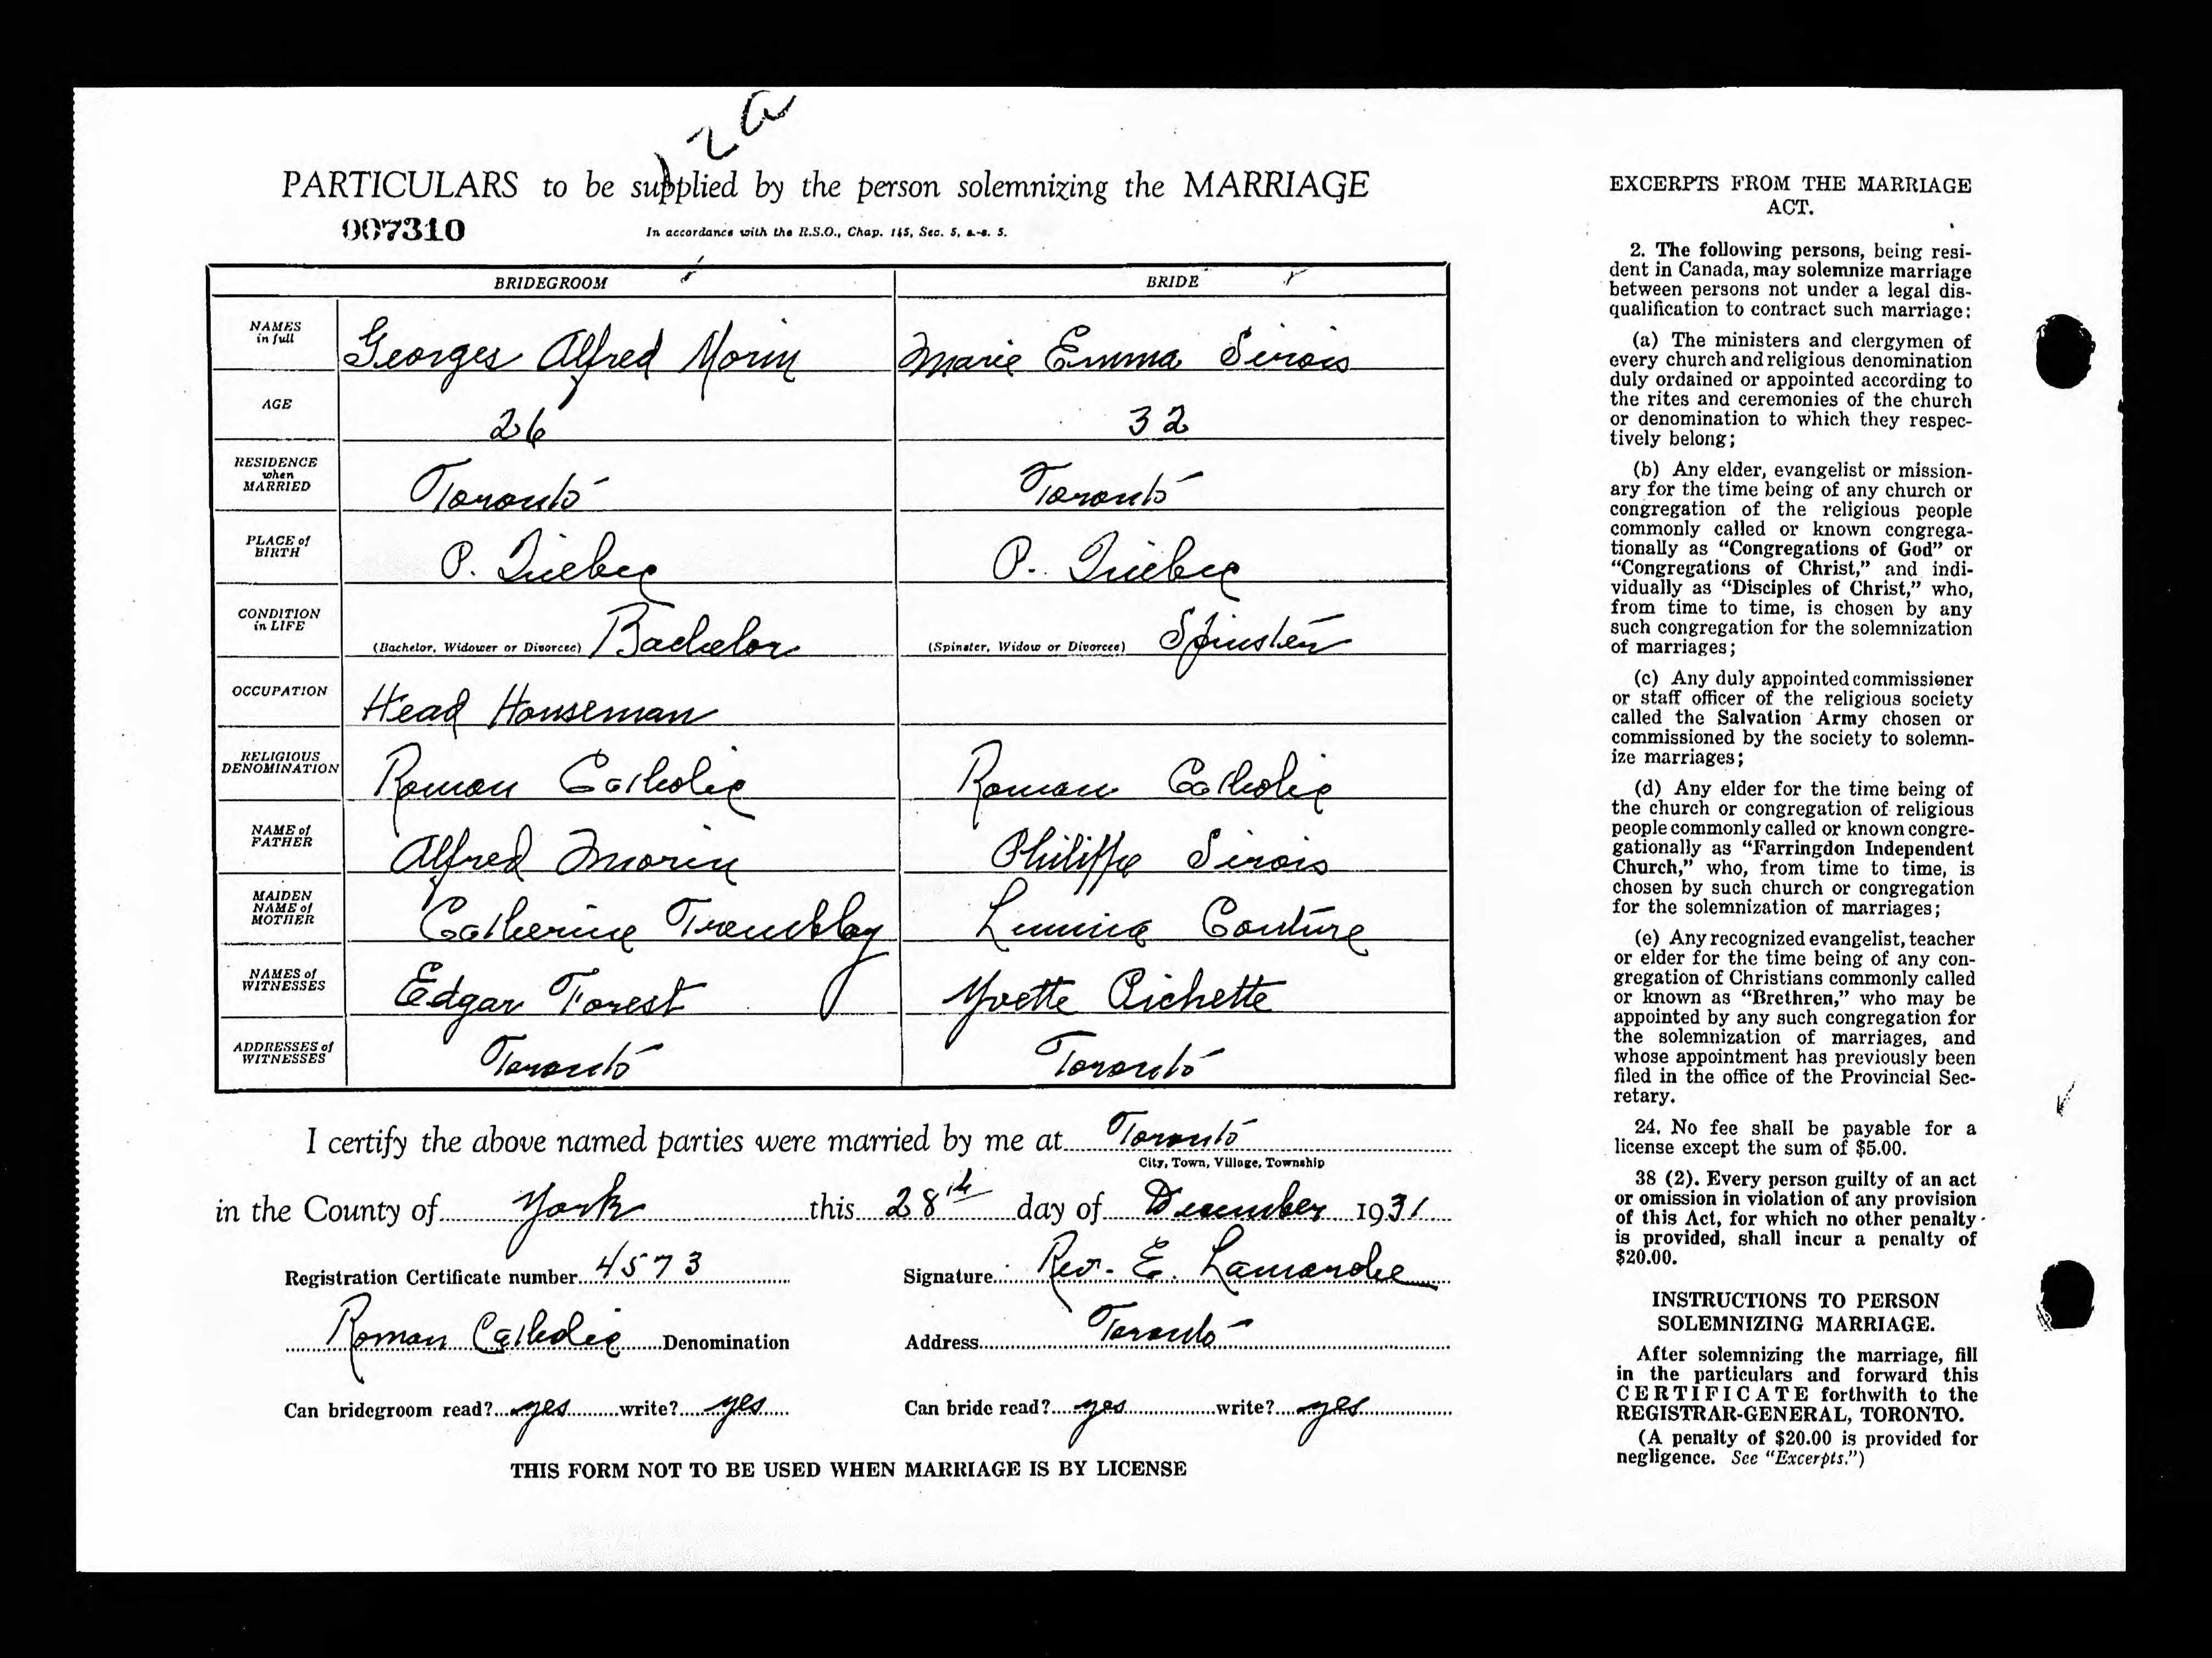 PARTICULARS to be supplied by the person solemnizing the MARRIAGE
007310
In accordance with the R.S.O., Chap. 145, Sec. 5, s.-s. 5.
BRIDEGROOM BRIDE
NAMES in full Georges Alfred Morin Marie Emma Sirois
AGE 26 32
RESIDENCE when MARRIED Toronto Toronto
PLACE of BIRTH P. Quebec P. Quebec
CONDITION in LIFE (Bachelor, Widower or Divorcee) Bachelor (Spinster, Widow or Divorcee) Spinster
OCCUPATION Head Houseman
RELIGIOUS DENOMINATION Roman Catholic Roman Catholic
NAME of FATHER Alfred Morin Philippe Sirois
MAIDEN NAME of MOTHER Catherine Tremblay Lumina Couture
NAMES of WITNESSES Edgar Forest Yvette Pichette
ADDRESSES of WITNESSES Toronto Toronto
I certify the above named parties were married by me at Toronto
City, Town, Village, Township
in the County of York this 28th day of December 1931
Registration Certificate number 4573 Signature Rev. E. Lamarche
Roman Catholic Denomination Address Toronto
Can bridegroom read? yes write? yes Can bride read? yes write? yes
THIS FORM NOT TO BE USED WHEN MARRIAGE IS BY LICENSE
EXCERPTS FROM THE MARRIAGE
ACT.
2. The following persons, being resi-
dent in Canada, may solemnize marriage
between persons not under a legal dis-
qualification to contract such marriage:
(a) The ministers and clergymen of
every church and religious denomination
duly ordained or appointed according to
the rites and ceremonies of the church
or denomination to which they respec-
tively belong;
(b) Any elder, evangelist or mission-
ary for the time being of any church or
congregation of the religious people
commonly called or known congrega-
tionally as "Congregations of God" or
"Congregations of Christ," and indi-
vidually as "Disciples of Christ," who,
from time to time, is chosen by any
such congregation for the solemnization
of marriages;
(c) Any duly appointed commissioner
or staff officer of the religious society
called the Salvation Army chosen or
commissioned by the society to solemn-
ize marriages;
(d) Any elder for the time being of
the church or congregation of religious
people commonly called or known congre-
gationally as "Farringdon Independent
Church," who, from time to time, is
chosen by such church or congregation
for the solemnization of marriages;
(e) Any recognized evangelist, teacher
or elder for the time being of any con-
gregation of Christians commonly called
or known as "Brethren," who may be
appointed by any such congregation for
the solemnization of marriages, and
whose appointment has previously been
filed in the office of the Provincial Sec-
retary.
24. No fee shall be payable for a
license except the sum of $5.00.
38 (2). Every person guilty of an act
or omission in violation of any provision
of this Act, for which no other penalty
is provided, shall incur a penalty of
$20.00.
INSTRUCTIONS TO PERSON
SOLEMNIZING MARRIAGE.
After solemnizing the marriage, fill
in the particulars and forward this
CERTIFICATE forthwith to the
REGISTRAR-GENERAL, TORONTO.
(A penalty of $20.00 is provided for
negligence. See "Excerpts.")